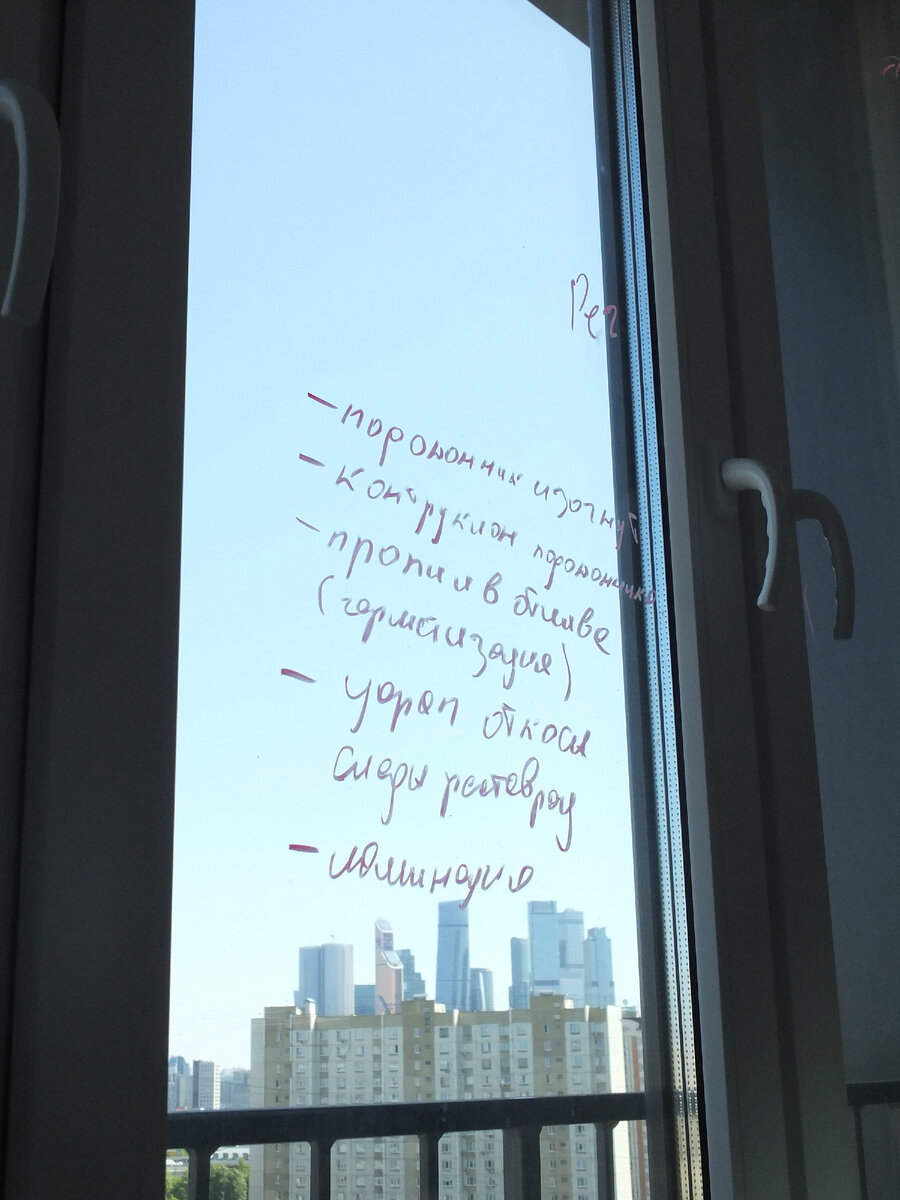 Рег
- пороконник изогнут
- контруклон пороконника
- пропил в отливе
(гермтизация)
- царап откосы
следы реставрац
- ламинация